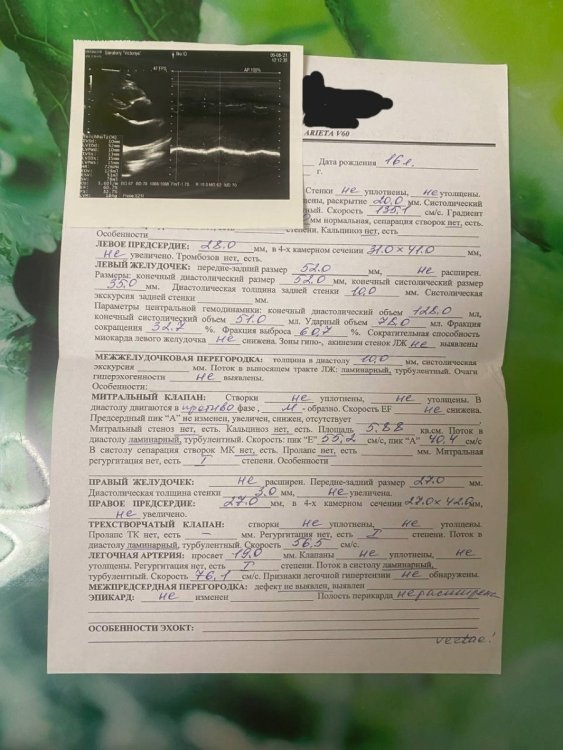 Sanatory "Victoriya"
No ID
05-08-21
10:12:32
47 FPS
AP:100%
ARIETA V60
Дата рождения 16 л.
г.
Стенки не уплотнены, не утолщены.
раскрытие 20,0 мм. Систолический
Скорость 135,1 см/с. Градиент
нормальная, сепарация створок нет, есть.
степени. Кальциноз нет, есть.
Особенности
ЛЕВОЕ ПРЕДСЕРДИЕ: 28.0 мм, в 4-х камерном сечении 31.0 x 41.0 мм,
не увеличено. Тромбозов нет, есть.
ЛЕВЫЙ ЖЕЛУДОЧЕК: передне-задний размер 52.0 мм, не расширен.
Размеры: конечный диастолический размер 52.0 мм, конечный систолический размер
35.0 мм. Диастолическая толщина задней стенки 10,0 мм. Систолическая
экскурсия задней стенки мм.
Параметры центральной гемодинамики: конечный диастолический объем 128.0 мл,
конечный систолический объем 51.0 мл. Ударный объем 78,0 мл. Фракция
сокращения 32,7 %. Фракция выброса 60,7 %. Сократительная способность
миокарда левого желудочка не снижена. Зоны гипо-, акинезии стенок ЛЖ не выявлены
МЕЖЖЕЛУДОЧКОВАЯ ПЕРЕГОРОДКА: толщина в диастолу 10,0 мм, систолическая
экскурсия мм. Поток в выносящем тракте ЛЖ: ламинарный, турбулентный. Очаги
гиперэхогенности не выявлены.
Особенности:
МИТРАЛЬНЫЙ КЛАПАН: Створки не уплотнены, не утолщены. В
диастолу двигаются в противо фазе, М - образно. Скорость EF не снижена.
Предсердный пик "А" не изменен, увеличен, снижен, отсутствует
Митральный стеноз нет, есть. Кальциноз нет, есть. Площадь 5,88 кв.см. Поток в
диастолу ламинарный, турбулентный. Скорость: пик "Е" 55,2 см/с, пик "А" 40,4 см/с
В систолу сепарация створок МК нет, есть. Пролапс нет, есть мм. Митральная
регургитация нет, есть I степени. Особенности
ПРАВЫЙ ЖЕЛУДОЧЕК: не расширен. Передне-задний размер 27.0 мм.
Диастолическая толщина стенки 3,0 мм, не увеличена.
ПРАВОЕ ПРЕДСЕРДИЕ: 27.0 мм, в 4-х камерном сечении 27.0 x 42.0 мм,
не увеличено.
ТРЕХСТВОРЧАТЫЙ КЛАПАН: створки не уплотнены, не утолщены.
Пролапс ТК нет, есть – мм. Регургитация нет, есть I степени. Поток в
диастолу ламинарный, турбулентный. Скорость 56,5 см/с.
ЛЕГОЧНАЯ АРТЕРИЯ: просвет 19.0 мм. Клапаны не уплотнены, не
утолщены. Регургитация нет, есть I степени. Поток в систолу ламинарный,
турбулентный. Скорость 76,1 см/с. Признаки легочной гипертензии не обнаружены.
МЕЖПРЕДСЕРДНАЯ ПЕРЕГОРОДКА: дефект не выявлен, выявлен
ЭПИКАРД: не изменен Полость перикарда не расширена
ОСОБЕННОСТИ ЭХОКГ: